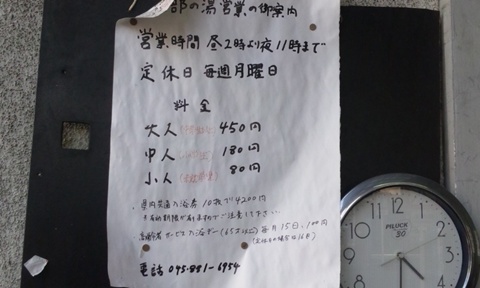 部の湯営業の御案内
営業時間 昼2時より夜11時まで
定休日 毎週月曜日
料金
大人 450円
中人 180円
小人 80円
県内共通入浴券 10枚で4200円
毎月15日、100円
電話 045-881-6954
12
1
2
3
4
5
6
7
8
9
10
11
PILUCK
50